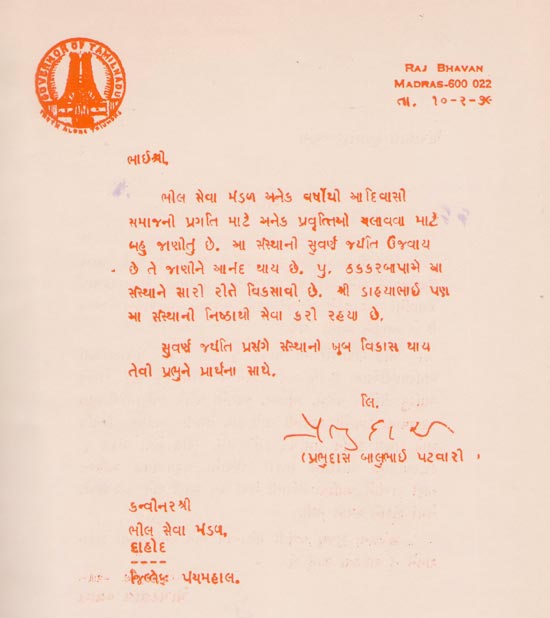 GOVERNOR OF TAMILNADU
TRUTH ALONE TRIUMPHS
RAJ BHAVAN
MADRAS-600 022
તા. ૧૦-૨-૭૯
ભાઈશ્રી,
ભીલ સેવા મંડળ અનેક વર્ષોથી આદિવાસી
સમાજની પ્રગતિ માટે અનેક પ્રવૃત્તિઓ ચલાવવા માટે
બહુ જાણીતું છે. આ સંસ્થાની સુવર્ણ જયંતિ ઉજવાય
છે તે જાણીને આનંદ થાય છે. પુ. ઠક્કરબાપાએ આ
સંસ્થાને સારી રીતે વિકસાવી છે. શ્રી ડાહયાભાઈ પણ
આ સંસ્થાની નિષ્ઠાથી સેવા કરી રહયા છે.
સુવર્ણ જયંતિ પ્રસંગે સંસ્થાનો ખુબ વિકાસ થાય
તેવી પ્રભુને પ્રાર્થના સાથે.
લિ.
પ્રભુદાસ
(પ્રભુદાસ બાલુભાઈ પટવારી)
કન્વીનરશ્રી
ભીલ સેવા મંડળ,
દાહોદ
----
જિલ્લેફ પંચમહાલ.